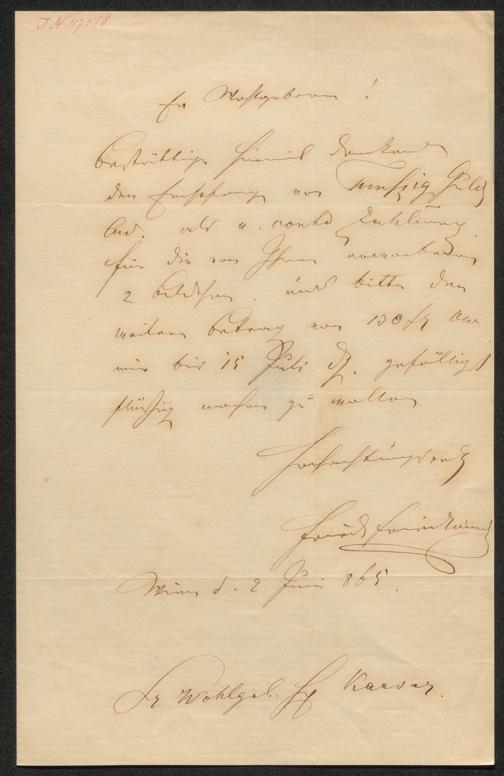 J.N. 119258
Ew Wohlgeboren!
bestättige hiemit dankend
den Empfang von Funfzig Guld
als a conto Zahlung
für die von Ihnen erworbenen
2 Bildchen. und bitte den
weitern Betrag von 130 f
mir bis 15 Juli d. gefälligst
flüssig machen zu wollen
Hochachtungsvoll
Wien d. 2 Juni 865.
Sr Wohlgeb. H Kaeser.